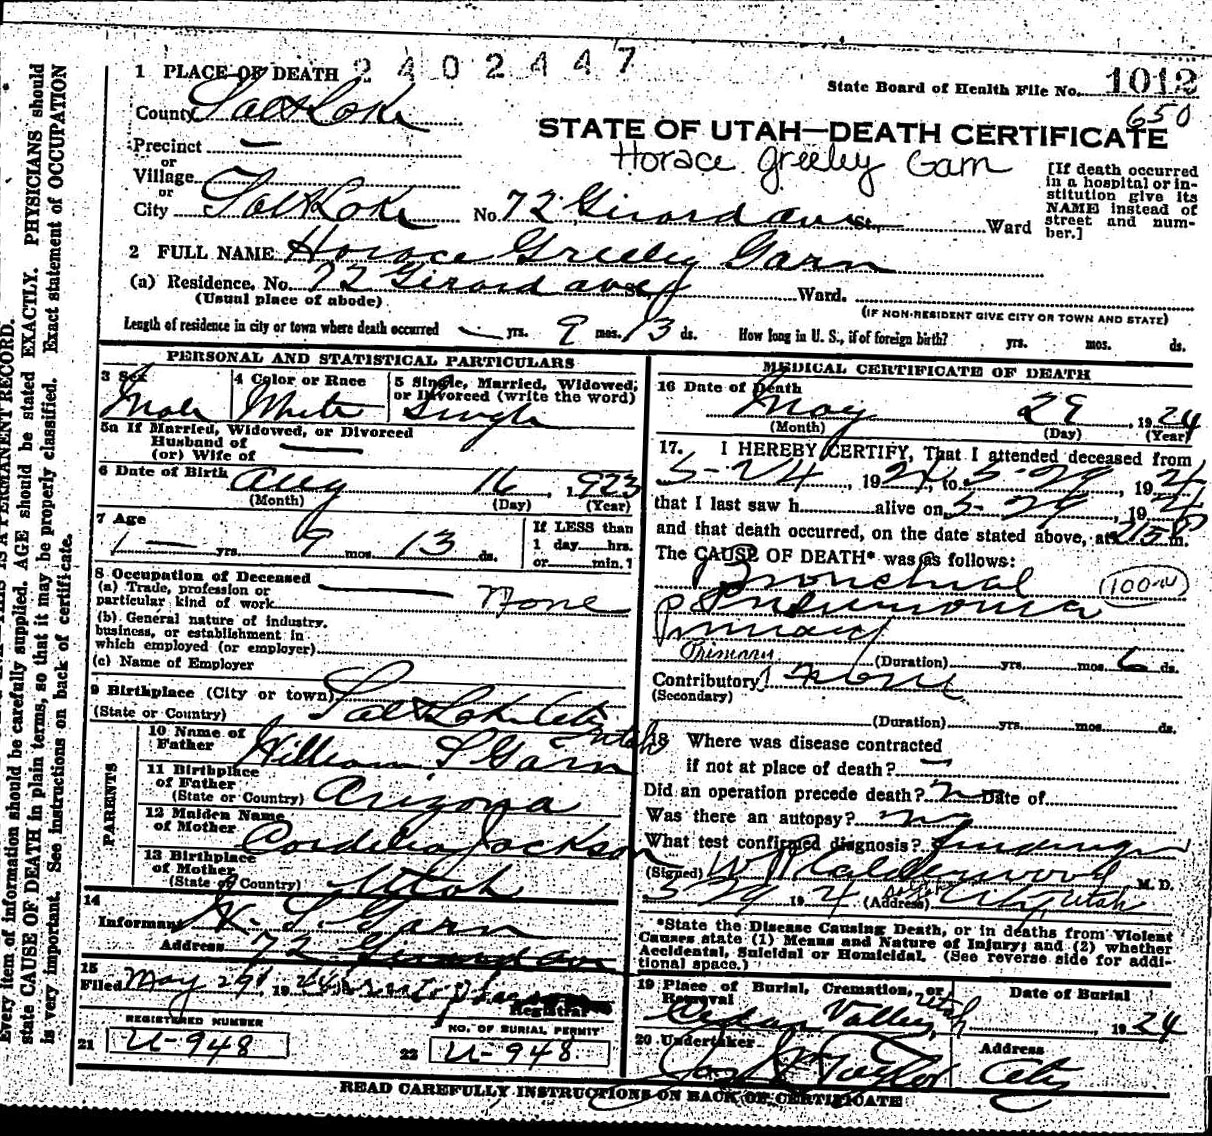 1 PLACE OF DEATH 2402447
State Board of Health File No. 1012
650
County Salt Lake
STATE OF UTAH—DEATH CERTIFICATE
Horace Greeley Garn
Precinct —
or
Village
or
City Salt Lake No. 72 Girard ave St. Ward
[If death occurred
in a hospital or in-
stitution give its
NAME instead of
street and num-
ber.]
2 FULL NAME Horace Greeley Garn
(a) Residence. No. 72 Girard ave St. Ward.
(Usual place of abode)
(IF NON-RESIDENT GIVE CITY OR TOWN AND STATE)
Length of residence in city or town where death occurred — yrs. 9 mos. 13 ds. How long in U. S., if of foreign birth? yrs. mos. ds.
PERSONAL AND STATISTICAL PARTICULARS
3 Sex
Male
4 Color or Race
White
5 Single, Married, Widowed,
or Divorced (write the word)
Single
5a If Married, Widowed, or Divorced
Husband of
(or) Wife of —
6 Date of Birth Aug 16, 1923
(Month) (Day) (Year)
7 Age
— yrs. 9 mos. 13 ds.
If LESS than
1 day hrs.
or min.?
8 Occupation of Deceased
(a) Trade, profession or
particular kind of work None
(b) General nature of industry,
business, or establishment in
which employed (or employer)
(c) Name of Employer
9 Birthplace (City or town) Salt Lake City
(State or Country) Utah
PARENTS
10 Name of
Father William S Garn
11 Birthplace
of Father
(State or Country) Arizona
12 Maiden Name
of Mother Cordelia Jackson
13 Birthplace
of Mother
(State or Country) Utah
14
Informant W. S. Garn
Address 72 Girard ave
15
Filed May 29, 1924
Registrar
REGISTERED NUMBER
21 U-948
NO. OF BURIAL PERMIT
22 U-948
MEDICAL CERTIFICATE OF DEATH
16 Date of Death
May 29, 1924
(Month) (Day) (Year)
17. I HEREBY CERTIFY, That I attended deceased from
5-24, 1924, to 5-29, 1924
that I last saw h alive on 5-29, 1924
and that death occurred, on the date stated above, at 215 P m.
The CAUSE OF DEATH* was as follows:
Bronchial
100-W
Pneumonia
Primary
Primary (Duration) yrs. mos. 6 ds.
Contributory None
(Secondary)
(Duration) yrs. mos. ds.
18 Where was disease contracted
if not at place of death? —
Did an operation precede death? no Date of
Was there an autopsy? no
What test confirmed diagnosis? findings
(Signed) W R Calderwood M. D.
5/29 1924 (Address) Salt Lake City, Utah
*State the Disease Causing Death, or in deaths from Violent
Causes state (1) Means and Nature of Injury; and (2) whether
Accidental, Suicidal or Homicidal. (See reverse side for addi-
tional space.)
19 Place of Burial, Cremation, or
Removal
Cedar Valley, Utah
Date of Burial
1924
20 Undertaker
Jos Wm Taylor
Address
City
READ CAREFULLY INSTRUCTIONS ON BACK OF CERTIFICATE
THIS IS A PERMANENT RECORD.
Every item of information should be carefully supplied. AGE should be stated EXACTLY. PHYSICIANS should
state CAUSE OF DEATH in plain terms, so that it may be properly classified. Exact statement of OCCUPATION
is very important. See instructions on back of certificate.